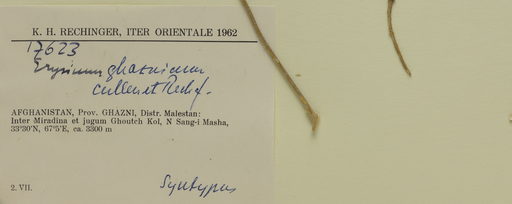 K. H. RECHINGER, ITER ORIENTALE 1962
17623
Erysimum ghaznicum
Cullen et Rech.f.
AFGHANISTAN, Prov. GHAZNI, Distr. Malestan:
Inter Miradina et jugum Ghoutch Kol, N Sang-i Masha,
33°30'N, 67°5'E, ca. 3300 m
2. VII.
Syntypus